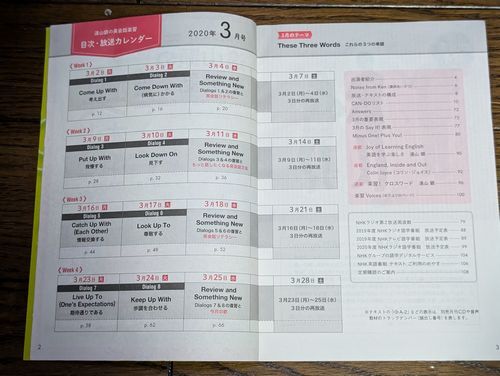 遠山顕の英会話楽習
目次・放送カレンダー
2020年 3月号
Week 1
3月2日 月
Dialog 1
Come Up With
考え出す
p. 12
3月3日 火
Dialog 2
Come Down With
(病気に)かかる
p. 16
3月4日 水
Review and
Something New
Dialogs 1 & 2の復習と
英会話リテラシー
p. 20
3月7日 土
3月2日(月)~4日(水)
3日分の再放送
Week 2
3月9日 月
Dialog 3
Put Up With
我慢する
p. 28
3月10日 火
Dialog 4
Look Down On
見下す
p. 32
3月11日 水
Review and
Something New
Dialogs 3 & 4の復習と
p. 36
3月14日 土
3月9日(月)~11日(水)
3日分の再放送
Week 3
3月16日 月
Dialog 5
Catch Up With
(Each Other)
情報交換する
p. 44
3月17日 火
Dialog 6
Look Up To
尊敬する
p. 48
3月18日 水
Review and
Something New
Dialogs 5 & 6の復習と
英会話リテラシー
p. 52
3月21日 土
3月16日(月)~18日(水)
3日分の再放送
Week 4
3月23日 月
Dialog 7
Live Up To
(One's Expectations)
期待通りである
p. 58
3月24日 火
Dialog 8
Keep Up With
歩調を合わせる
p. 62
3月25日 水
Review and
Something New
Dialogs 7 & 8の復習と
今月の歌
p. 66
3月28日 土
3月23日(月)~25日(水)
3日分の再放送
2
3月のテーマ
These Three Words これらの3つの単語
出演者紹介 4
Notes from Ken
放送・テキストの構成 8
CAN-DOリスト 10
Answers 72
3月の重要表現 75
3月の Say It! 表現 77
Minus One! Plus You! 80
連載 Joy of Learning English
英語を学ぶ楽しさ 遠山 顕 90
連載 England, Inside and Out
Colin Joyce(コリン・ジョイス) 92
連載 楽習!クロスワード 遠山 顕 96
楽習 Voices 100
NHKラジオ第2放送時刻表 79
2019年度 NHKラジオ語学番組 放送予定表 88
2019年度 NHKテレビ語学番組 放送予定表
2020年度 NHKラジオ語学番組 放送予定表
NHKグループの語学デジタルサービス 104
NHK英語番組 テキスト ご利用のおすすめ 106
定期購読のご案内 108
3